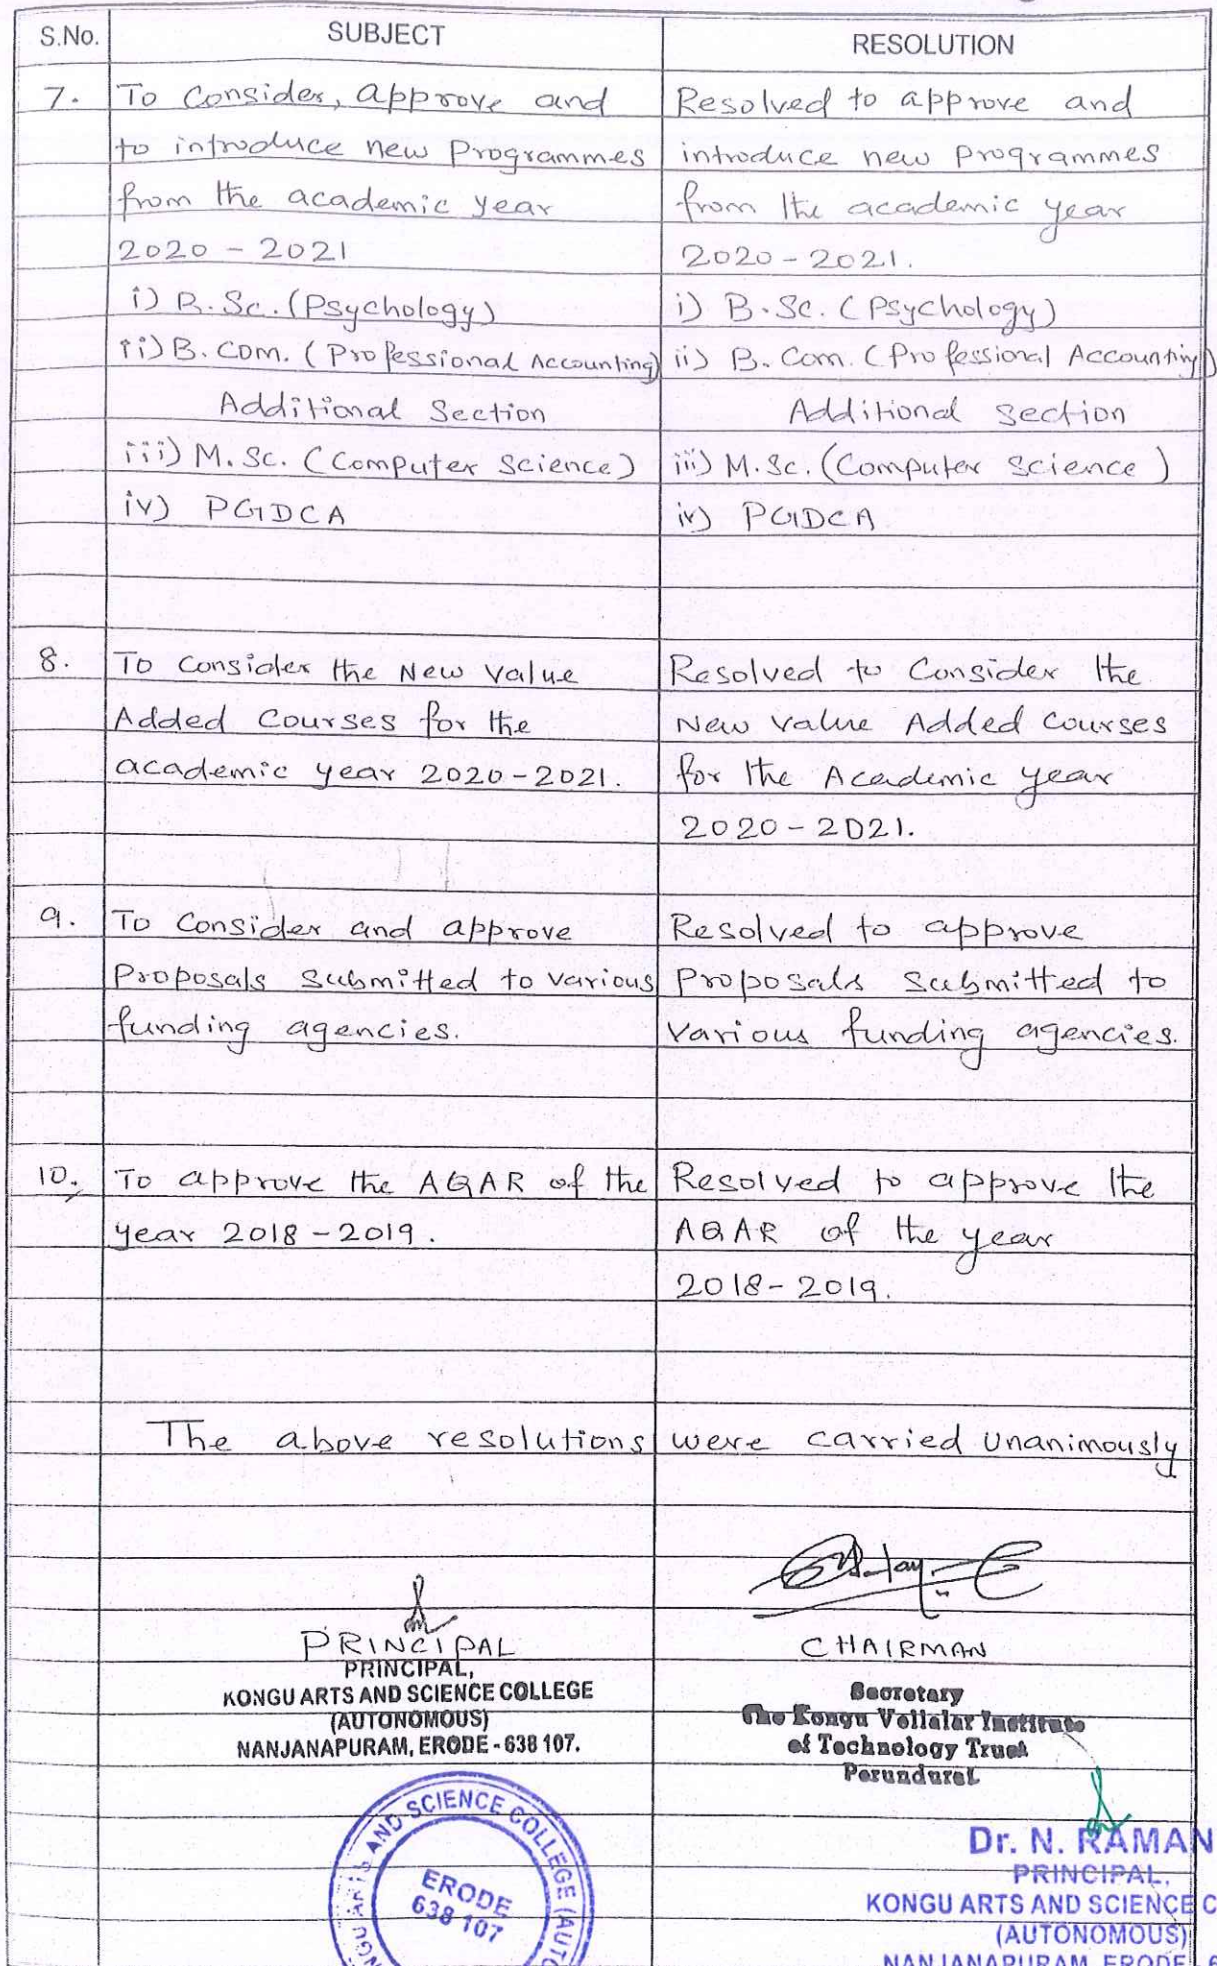 S.No. SUBJECT RESOLUTION
7. To Consider, approve and
to introduce new Programmes
from the academic year
2020 - 2021
i) B.Sc. (Psychology)
ii) B.Com. (Professional Accounting)
Additional Section
iii) M.Sc. (Computer Science)
iv) PGDCA
Resolved to approve and
introduce new programmes
from the academic year
2020 - 2021.
i) B.Sc. (Psychology)
ii) B.Com. (Professional Accounting)
Additional section
iii) M.Sc. (Computer Science)
iv) PGDCA
8. To consider the New Value
Added Courses for the
academic year 2020-2021.
Resolved to Consider the
New Value Added Courses
for the Academic year
2020 - 2021.
9. To Consider and approve
Proposals Submitted to various
funding agencies.
Resolved to approve
Proposals Submitted to
various funding agencies.
10. To approve the AQAR of the
year 2018 - 2019.
Resolved to approve the
AQAR of the year
2018 - 2019.
The above resolutions were carried unanimously
PRINCIPAL
PRINCIPAL,
KONGU ARTS AND SCIENCE COLLEGE
(AUTONOMOUS)
NANJANAPURAM, ERODE - 638 107.
CHAIRMAN
Secretary
The Kongu Vellalar Institute
of Technology Trust
Perundurai.
AND SCIENCE COLLEGE (AUTO
ERODE
638 107
Dr. N. RAMAN
PRINCIPAL,
KONGU ARTS AND SCIENCE C
(AUTONOMOUS)
NANJANAPURAM, ERODE